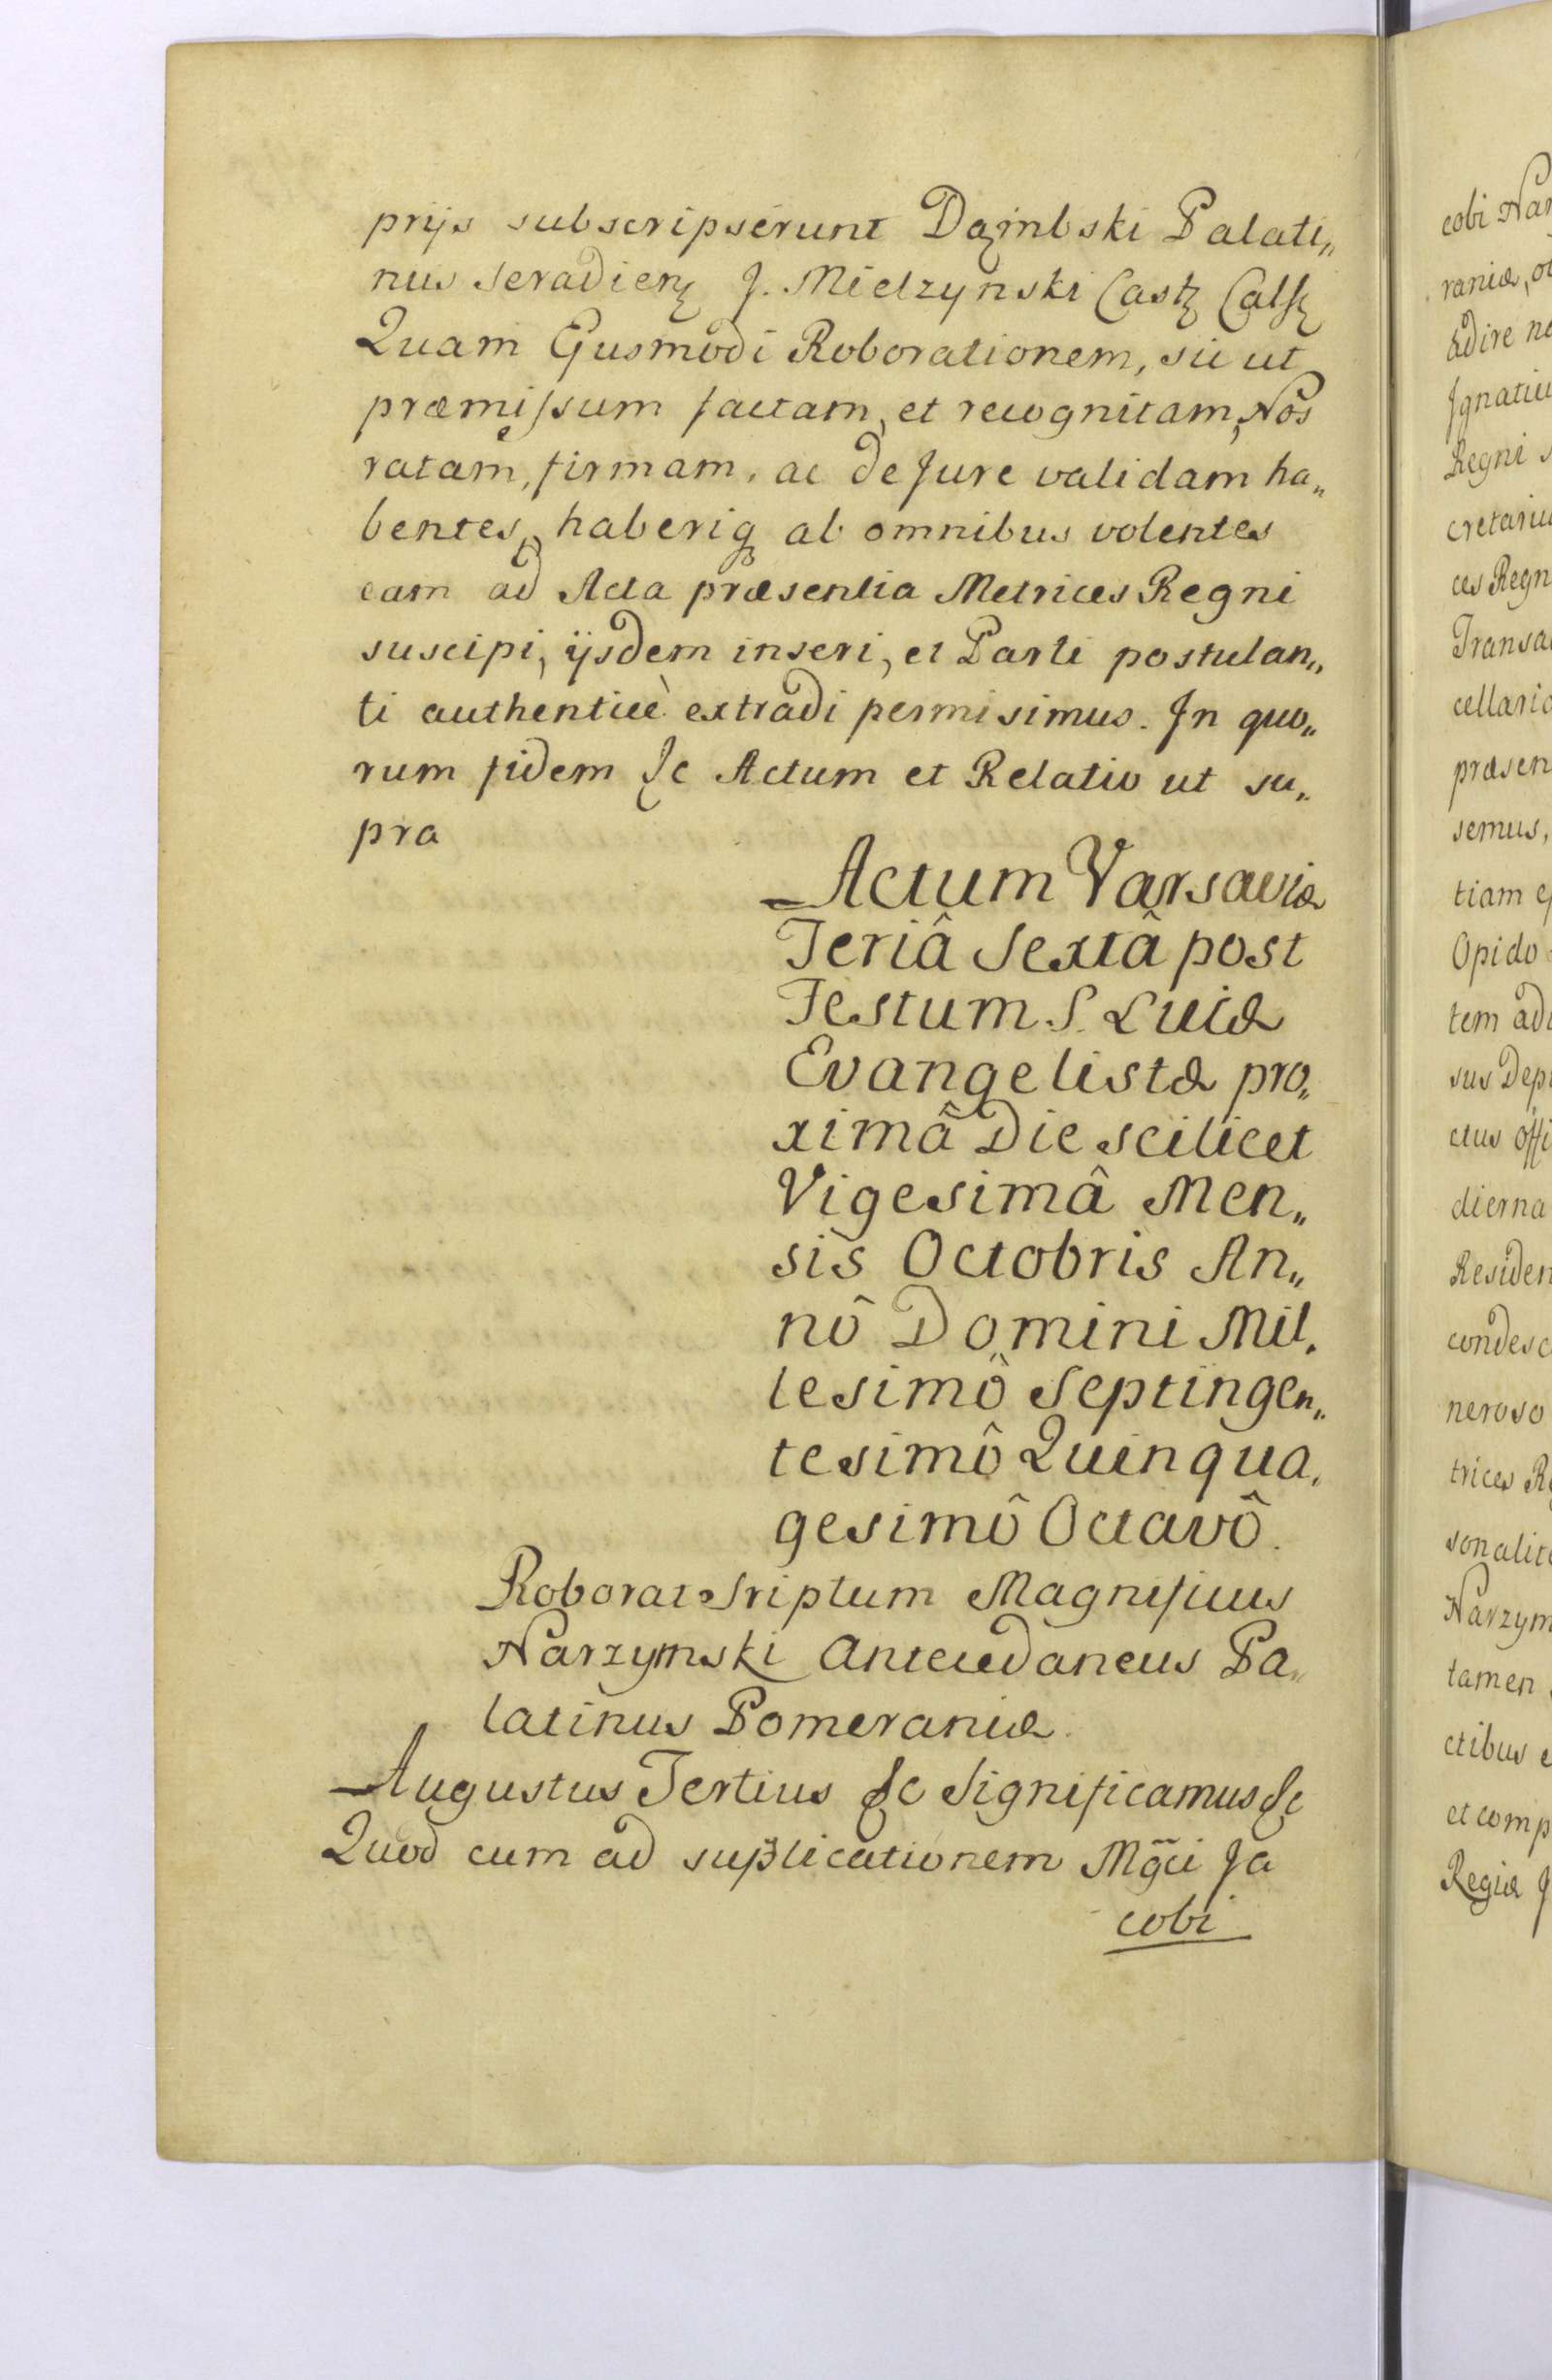 prijs subscripserunt Dąmbski Palati„
nus Seradienς J. Mielzynski Castꝫ Calſꝫ
Quam Ejusmodi Roborationem, sic ut
præmiſsum factam, et recognitam, Nos
ratam, firmam, ac de Jure validam ha„
bentes, haberiqꝫ ab omnibus volentes
eam ad Acta præsentia Metrices Regni
suscipi, ijsdem inseri, et Parti postulan„
ti authenticè extradi permisimus. In quo„
rum fidem &c Actum et Relatio ut su„
pra
Actum Varsaviæ
Feriâ Sextâ post
Festum S. Lucæ
Evangelistæ pro„
ximâ Die scilicet
Vigesimâ Men„
sis Octobris An„
nô Domini Mil„
lesimô Septingen„
tesimô Quinqua„
gesimô Octavô.
Roborat Sriptum Magnificus
Narzymski Antecedaneus Pa„
latinus Pomeraniæ.
Augustus Tertius &c Significamus &c
Quod cum ad suplicationem Mg̃ci Ja
cobi
cobi Nar
raniæ, ol
adire ne
Ignatiu
Regni s
cretariu
ces Regn
Transa
cellario
præsen
semus,
tiam ej
Opido
tem adi
sus Dep
ctus offi
dierna
Residen
condesc
neroso
trices Re
sonalite
Narzym
tamen
ctibus e
et comp
Regiæ J